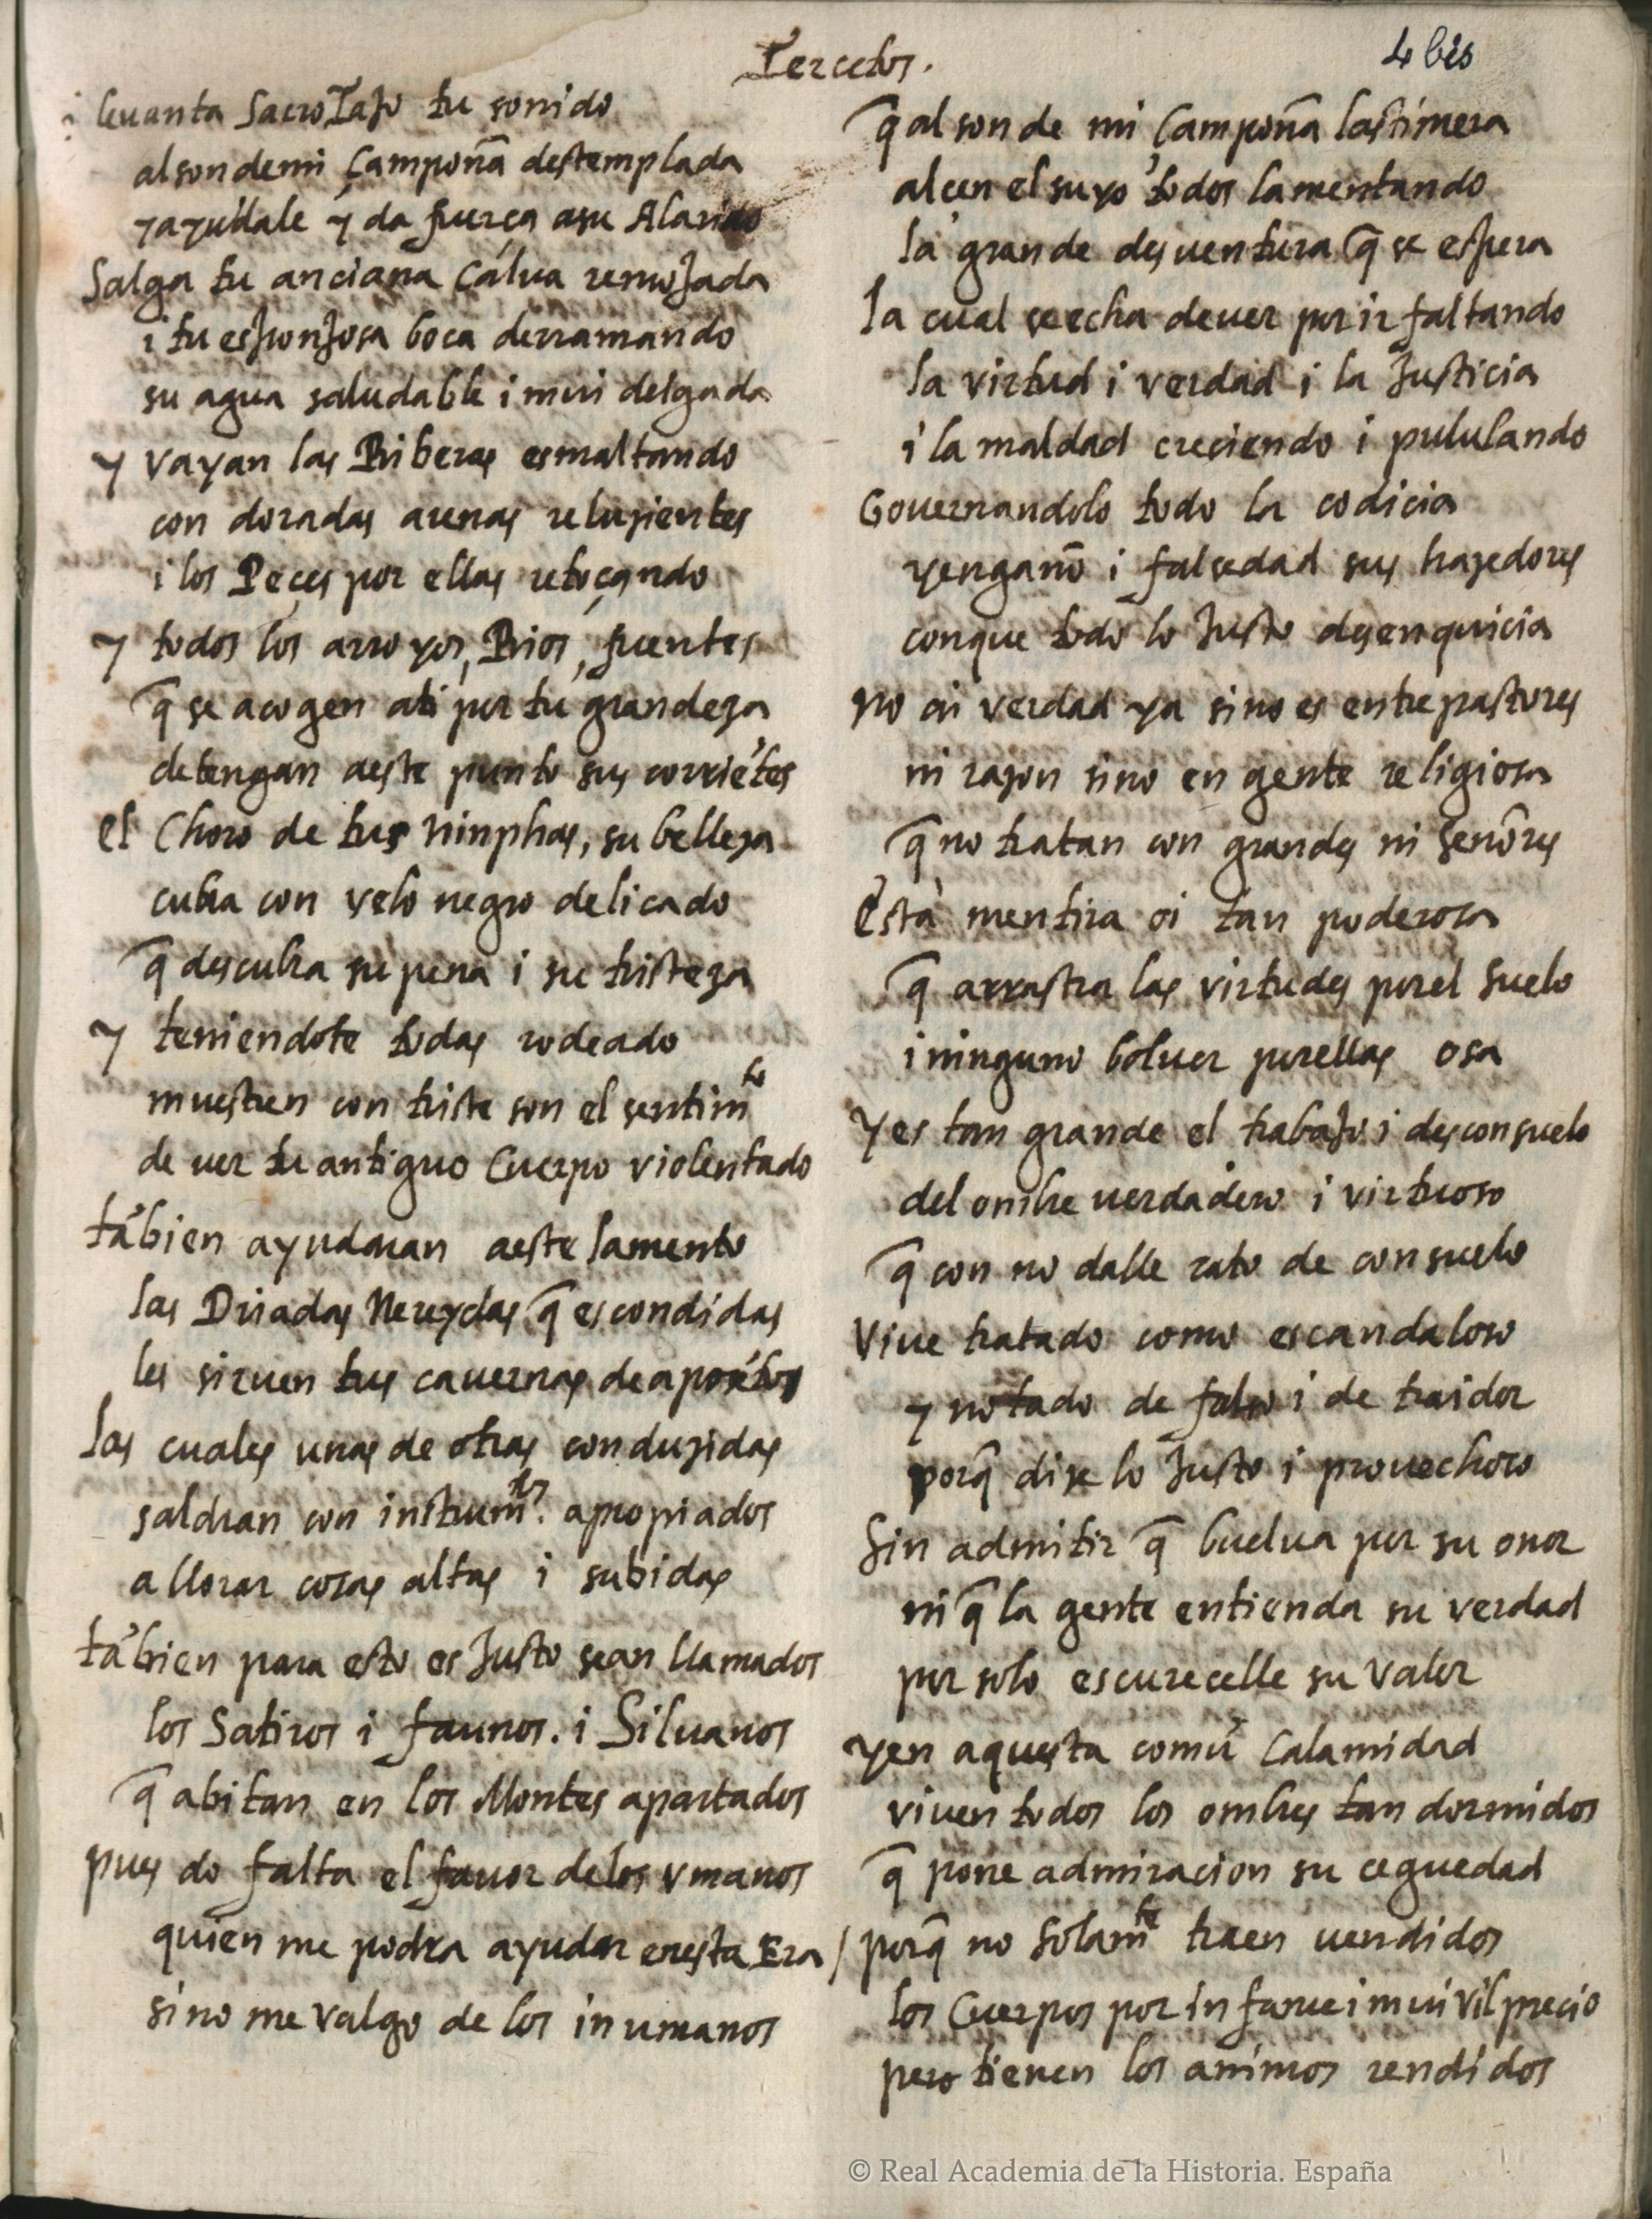 Tercetos.
4 bis
i leuanta Sacro Tajo tu sonido
al son de mi Çampoña destemplada
y ayúdale y da fuerça a su Alarido
Salga tu anciana Calua remojada
i tu esponjosa boca derramando
su agua saludable i mui delgada
y vayan las Riberas esmaltando
con doradas arenas reluzientes
i los Peçes por ellas retoçando
y todos los arroyos, Rios, fuentes
q̃ se acogen a ti por tu grandeza
detengan a este punto sus corriẽtes
el Choro de tus Ninphas, su belleza
cubra con velo negro delicado
q̃ descubra su pena i su tristeza
y teniendote todas rodeado
muestren con triste son el sentimto
de uer tu antiguo Cuerpo violentado
tãbien ayudaran a este lamento
las Driadas Nereydas q̃ escondidas
les siruen tus cauernas de aposẽtos
las cuales unas de otras conduzidas
saldran con instrumtos. apropiados
a llorar cosas altas i subidas
tãbien para esto es Justo sean llamados
los Satiros i faunos. i Siluanos
q̃ abitan en los Montes apartados
pues do falta el fauor de los vmanos
quien me podra ayudar en esta Era
si no me valgo de los inumanos
q̃ al son de mi Çampoña lastimera
alcen el suyo todos lamentando
la grande desuentura q̃ se espera
la cual se echa de uer por ir faltando
la virtud i verdad i la Justicia
i la maldad creciendo i pululando
Gouernandolo todo la codicia
y engaño i falsedad sus hazedores
con que todo lo Justo desenquicia
no ai verdad ya sino es entre pastores
ni razon sino en gente religiosa
q̃ no tratan con grandes ni Señores
Està mentira oi tan poderosa
q̃ arrastra las virtudes por el Suelo
i ninguno boluer por ellas osa
Y es tan grande el trabajo i desconsuelo
del ombre uerdadero i virtuoso
q̃ con no dalle rato de consuelo
Viue tratado como escandaloso
y notado de falso i de traidor
porq̃ dize lo Justo i prouechoso
Sin admitir q̃ buelua por su onor
ni q̃ la gente entienda su verdad
por solo escurecelle su valor
Y en aquesta comũ Calamidad
viuen todos los ombres tan dormidos
q̃ pone admiracion su ceguedad
/ porq̃ no Solamte traen uendidos
los Cuerpos por infame i mui vil precio
pero tienen los animos rendidos
© Real Academia de la Historia. España